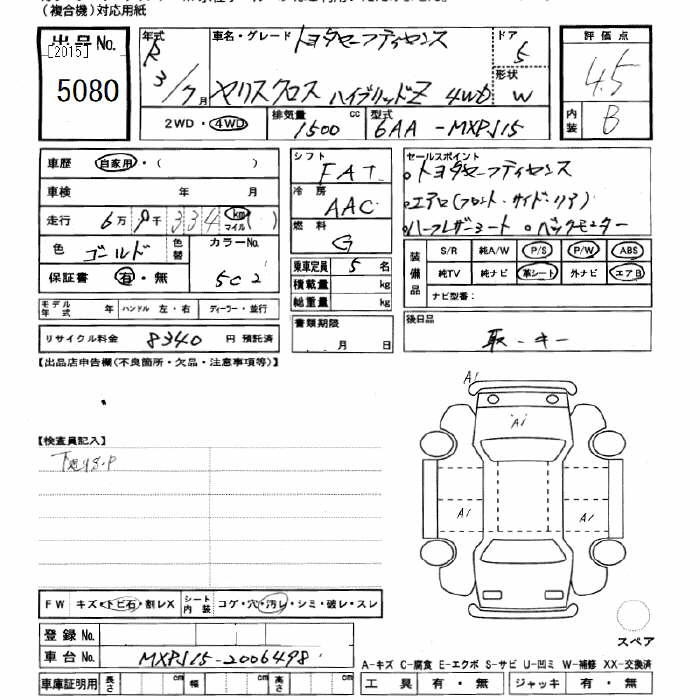 （複合機）対応用紙
出品No.
[2015]
5080
年式 R 3/7月
車名・グレード トヨタセーフティセンス
ヤリスクロス ハイブリッドZ 4WD
ドア 5
形状 W
評価点 4.5
内装 B
2WD・4WD
排気量 1500 cc
型式 6AA-MXPJ15
車歴 自家用・（　）
車検 年 月
走行 6万9千334 km マイル（　）
色 ゴールド 色替
カラーNo. 5C2
保証書 有・無
モデル年式 年 ハンドル 左・右 ディーラー・並行
リサイクル料金 8340 円 預託済
シフト FAT
冷房 AAC
燃料 G
乗車定員 5 名
積載量 kg
総重量 kg
書類期限
月 日
セールスポイント
トヨタセーフティセンス
エアロ(フロント・サイド・リア)
ハーフレザーシート バックモニター
装備品
S/R 純A/W P/S P/W ABS
純TV 純ナビ 革シート 外ナビ エアB
ナビ型番：
後日品
取・キー
【出品店申告欄（不良箇所・欠品・注意事項等）】
【検査員記入】
下廻りS.P
A1
A1
A1
A1
FW キズ・トビ石・割レX シート内装 コゲ・穴・汚レ・シミ・破レ・スレ
登録No.
車台No. MXPJ15-2006498
スペア
A-キズ C-腐食 E-エクボ S-サビ U-凹ミ W-補修 XX-交換済
車庫証明用 長さ cm 幅 cm 高さ cm
工具 有・無 ジャッキ 有・無